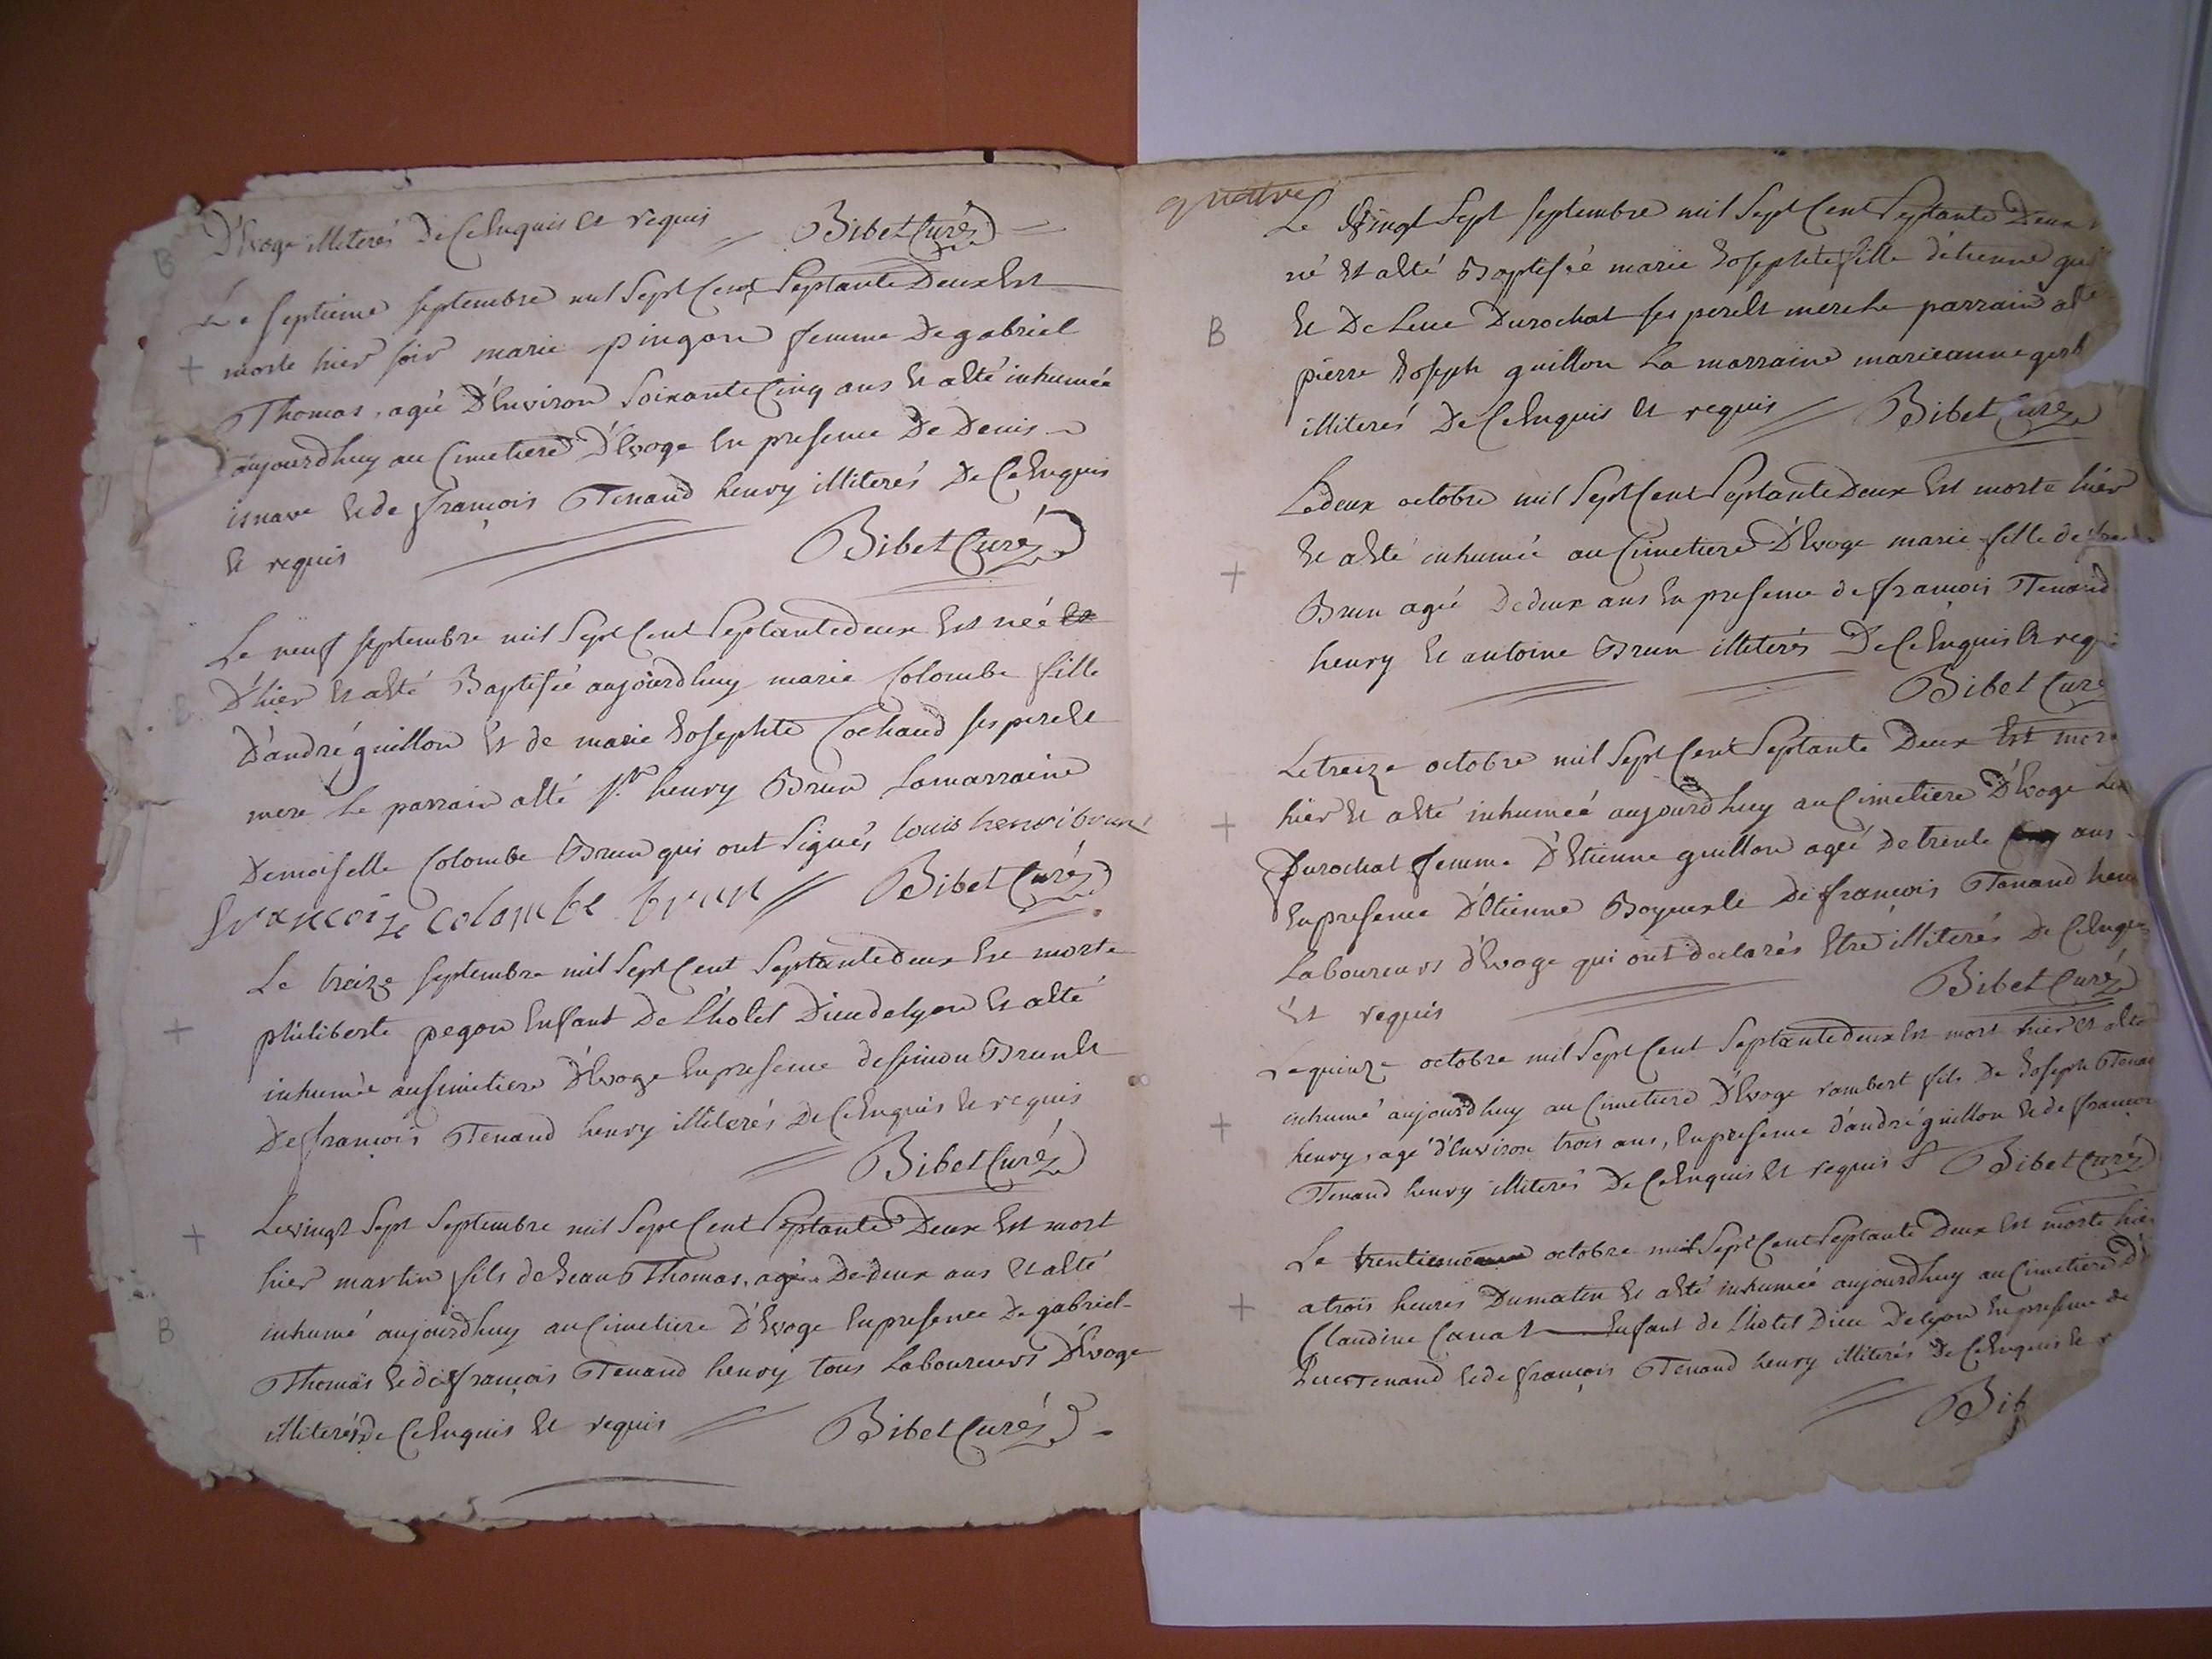 D'Evoge illiterés De Ce Enquis et requis Bibet Curé
B
Le septieme septembre mil Sept Cent Septante Deux Est
+ morte hier soir marie pingon femme De gabriel
Thomas, agée D'Environ Soixante Cinq ans Et a Eté inhumée
aujourdhuy au Cimetiere D'Evoge En presence De Denis
Et de françois Tenand henry illiterés De Ce Enquis
Et requis Bibet Curé
Le neuf septembre mil Sept Cent Septante deux Est née
B
D'hier Et a Eté Baptisée aujourdhuy marie Colombe fille
D'andré guillon Et de marie Josephte Cochaud ses pere Et
mere Le parrain a Eté Sr. henry Brun La marraine
Demoiselle Colombe Brun qui ont Signés louis henri brun
francoize colombe brun Bibet Curé
Le treize septembre mil Sept Cent Septante deux Est morte
+ philiberte pegon Enfant De L'hotel Dieu de Lyon Et a Eté
inhumée au Simetiere D'Evoge En presence de simon Brun Et
De françois Tenand henry illiterés De Ce Enquis Et requis
Bibet Curé
+ Le vingt Sept Septembre mil Sept Cent Septante Deux Est mort
hier martin fils de Jean Thomas, agé De deux ans Et a Eté
inhumé aujourdhuy au Cimetiere D'Evoge En presence De gabriel
B
Thomas Et de françois Tenand henry tous Laboureurs D'Evoge
illiterés de Ce Enquis Et requis Bibet Curé
quatre
Le Vingt Sept septembre mil Sept Cent Septante Deux
né Et a Eté Baptisée marie Josephte fille d'étienne
B
Et De Luce Durochat ses pere Et mere Le parrain
pierre Joseph guillon La marraine marieanne
illiterés De Ce Enquis Et requis Bibet Curé
Le deux octobre mil Sept Cent Septante Deux Est morte hier
Et a Eté inhumée au Cimetiere D'Evoge marie fille de
+
Brun agée De deux ans En presence de françois Tenand
henry Et antoine Brun illiterés De Ce Enquis Et
Bibet Curé
Le treize octobre mil Sept Cent Septante Deux Est
+ hier Et a Eté inhumée aujourdhuy au Cimetiere D'Evoge
Durochat femme D'Etienne guillon agée De trente ans
En presence D'Etienne De françois Tenand
Laboureurs d'Evoge qui ont declarés Etre illiterés De Ce
Et requis Bibet Curé
Le quinze octobre mil Sept Cent Septante deux Est mort hier Et a Eté
inhumé aujourdhuy au Cimetiere D'Evoge rambert fils De Joseph
+
henry, agé d'Environ trois ans, En presence d'andré guillon Et de
Tenand henry illiterés De Ce Enquis Et requis Bibet Curé
Le trentieme octobre mil Sept Cent Septante Deux Est morte
a trois heures Du matin Et a Eté inhumée aujourdhuy au Cimetiere
+
Claudine Canat Enfant de L'hotel Dieu De Lyon En presence de
Tenand Et de françois Tenand henry illiterés De Ce Enquis Et
Bib